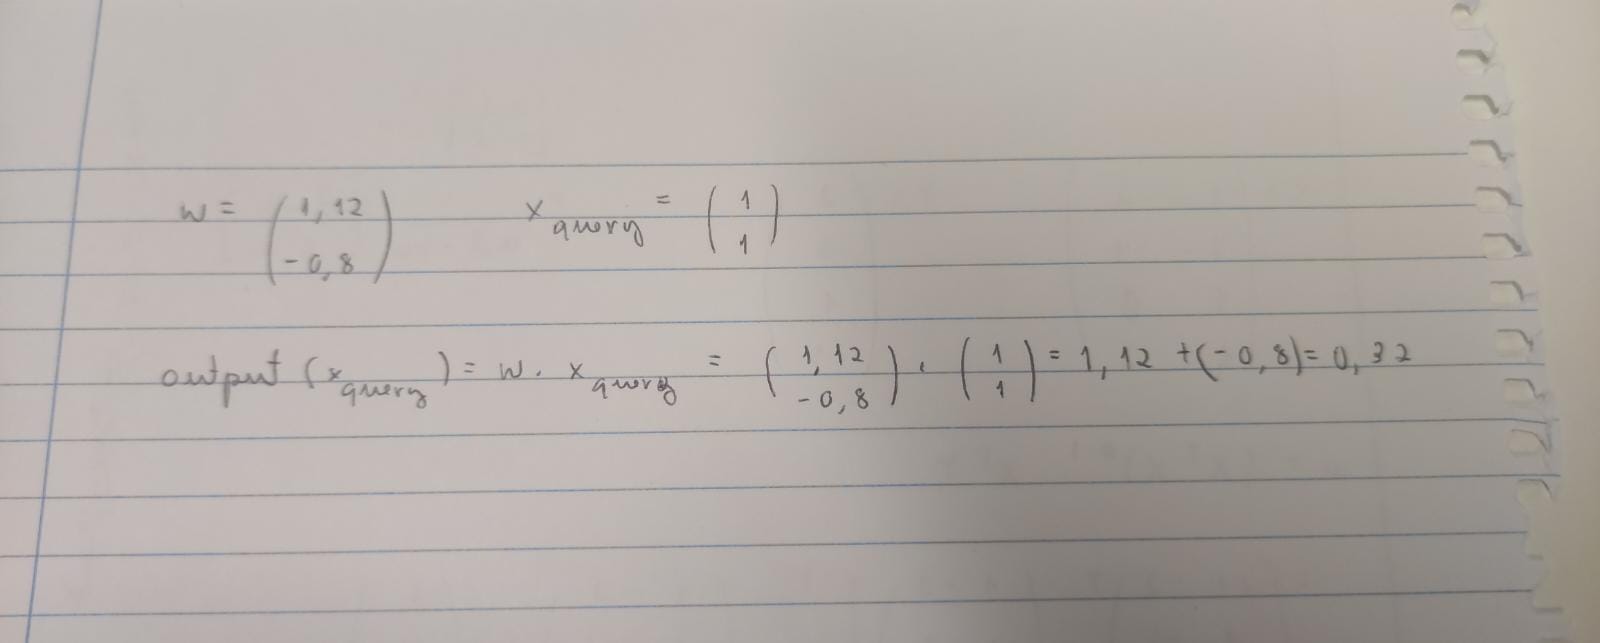 w = ( 1,12 -0,8 ) x query = ( 1 1 )
output (x query) = w. x query = ( 1,12 -0,8 ) . ( 1 1 ) = 1,12 +(-0,8)= 0,32